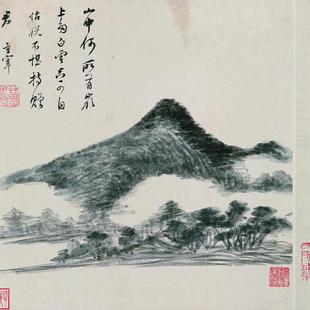 山中何所有嶺
上多白雲只可自
怡悅不堪持贈
君 玄宰